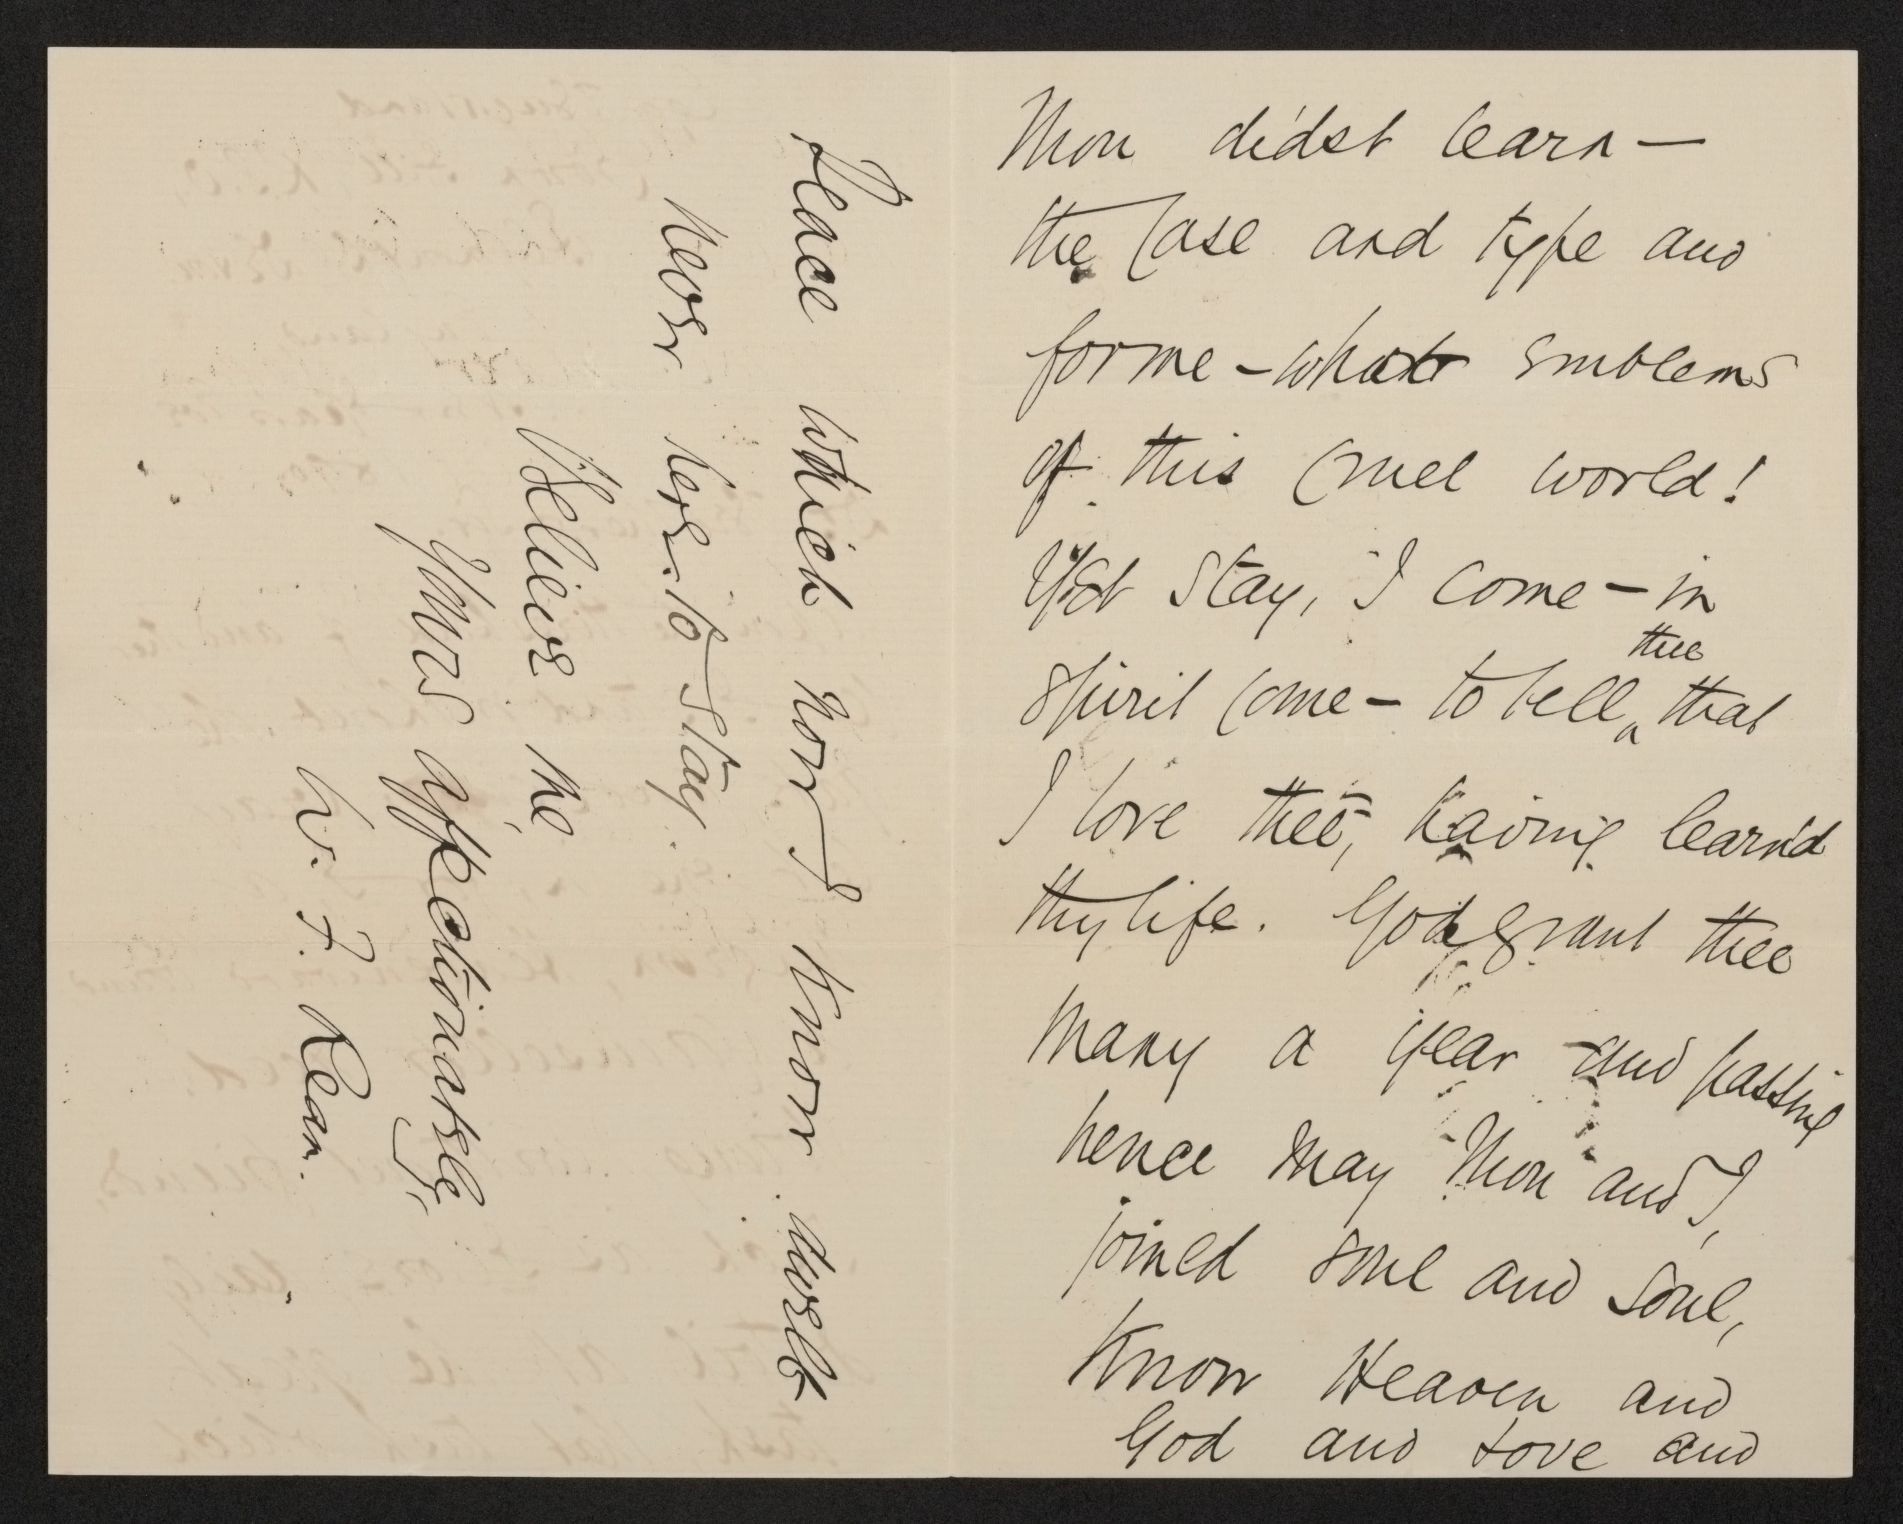 Thou didst learn —
the Case and type and
forme — what emblems
of this cruel world!
Yet stay, I come — in
spirit come — to tell thee that
I love thee, having learn'd
thy life. God grant thee
many a year and passing
hence may Thou and I,
joined soul and soul,
Know Heaven and
God and Love and
Peace which now I know dwelt
never here to stay.
Believe me,
Yours affectionately,
W. F.